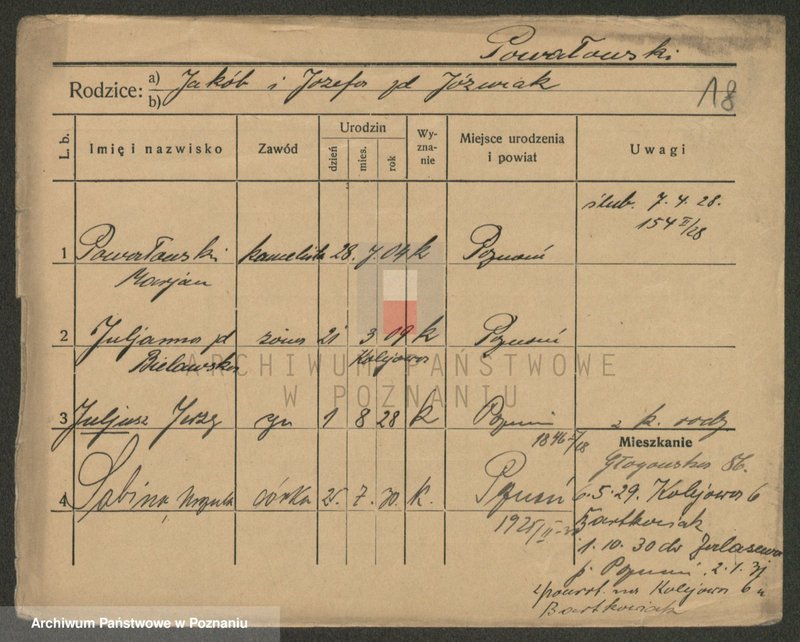 Powałowski
Rodzice: a) b) Jakób i Józefa zd Jóźwiak
18
L. b. Imię i nazwisko Zawód Urodzin dzień mies. rok Wyznanie Miejsce urodzenia i powiat Uwagi
ślub. 7. 4. 28.
154 II/28
1 Powałowski kancelista 28. 7 04 k Poznań
Marjan
2 Juljanna zd żona 21 3 09 k Poznań
Bielawska Kolejowa
ARCHIWUM PAŃSTWOWE
W POZNANIU
3 Juljusz Jerzy syn 1 8 28 k Poznań z k. rodz
1846
Mieszkanie
Głogowska 86.
4 Sabina, Urszula córka 25. 7. 30. k. Poznań 6.5.29. Kolejowa 6
Bartkowiak
1. 10. 30 do
p. Poznań. 2. 1. 31
z powrot. na Kolejowa 6 u
Bartkowiak
Archiwum Państwowe w Poznaniu